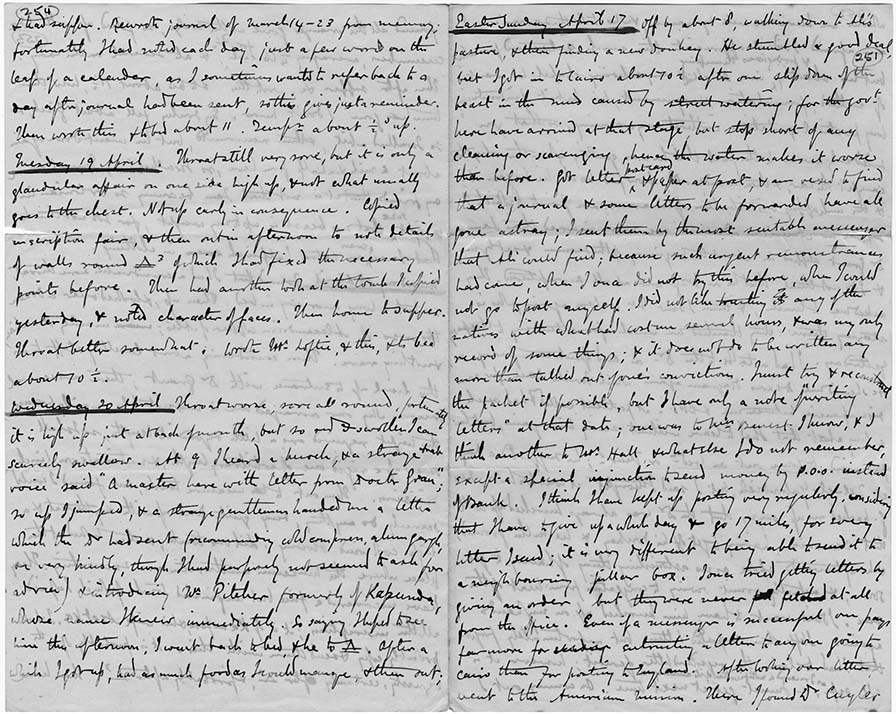 254
& had supper. Rewrote journal of March 14-23 from memory;
fortunately I had noted each day just a few words on the
leaf of a calendar, as I sometimes want to refer back to a
day after journal had been sent, so this gives just a reminder.
Then wrote this & to bed about 11. Temp. about ½° up.
Tuesday 19 April. Throat still very sore, but it is only a
glandular affair on one side high up, & not what usually
goes to the chest. Not up early in consequence. Copied
inscription fair, & then out in afternoon to note details
of walls round Δ 3 of which I had fixed the necessary
points before. Then had another look at the tomb I copied
yesterday, & noted character of faces. Then home to supper.
Throat better somewhat. Wrote Mr. Loftie, & this, & to bed
about 10½.
Wednesday 20 April Throat worse, sore all round,
it is high up just at back of mouth, but so red & swollen I can
scarcely swallow. At 9 I heard a & a strange
voice said "A master here with letter from Doctor Grant";
so up I jumped, & a strange gentleman handed me a letter
which the Dr had sent (recommending cold compress, alum gargle,
very kindly, though I had purposely not seemed to ask for
advice) & introducing Mr Pitcher formerly of Kapunda,
whose name I knew immediately. So saying I hoped to see
him this afternoon, I went back to bed, & he to Δ. After a
while I got up, had as much food as I could manage, & then out;
Easter Sunday April 17 Off by about 8, walking down to Ali's
pasture, & then finding a new donkey. He stumbled a good deal,
251
but I got in to Cairo about 10½ after one slip down of the
beast in the mud caused by street watering; for the govt.
here have arrived at that stage but stop short of any
cleaning or scavenging, hence the water makes it worse
than before. Got letter, postcard, & paper at post, & am vexed to find
that a journal & some letters to be forwarded have all
gone astray; I sent them by the most suitable messenger
that Ali could find; because such urgent remonstrances
had come, when I once did not try this before, when I could
not go to post myself. I did not like trusting it any of the
natives with what had cost me several hours, & was my only
record of some things; & it does not do to be written any
more than talked out of one's convictions. I must try & reconstruct
the packet if possible, but I have only a note of "writing
letters" at that date; one was to I know, & I
think another to Mr. Hall & what else I do not remember,
except a special injunction to send money by P.O.O. instead
of Bank. I think I have kept up posting very regularly, considering
that I have to give up a whole day & go 17 miles, for every
letter I send; it is very different to being able to send it to
a neighbouring pillar box. I once tried getting letters by
giving an order, but they were never fetched at all
from the office. Even if a messenger is successful one pays
far more for entrusting a letter to any one going to
Cairo than for posting to England. After looking over letters,
went to the American mission. There I found Dr